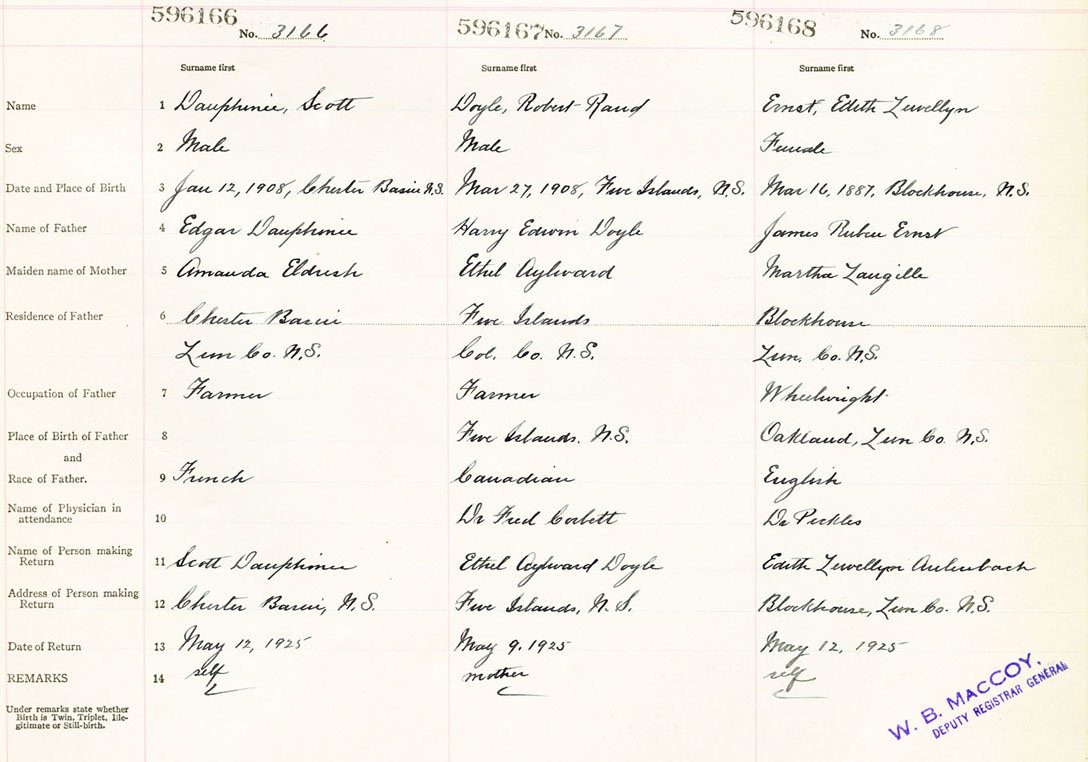 596166 No. 3166 596167 No. 3167 596168 No. 3168
Surname first Surname first Surname first
Name 1 Dauphinie, Scott Doyle, Robert Rand Ernst, Edith Lewellyn
Sex 2 Male Male Female
Date and Place of Birth 3 Jan 12, 1908, Chester Basin N.S. Mar 27, 1908, Five Islands, N.S. Mar 16, 1887, Blockhouse, N.S.
Name of Father 4 Edgar Dauphinie Harry Edwin Doyle James Ruben Ernst
Maiden name of Mother 5 Amanda Ethel Aylward Martha Langille
Residence of Father 6 Chester Basin Five Islands Blockhouse
Lun Co. N.S. Col. Co. N.S. Lun. Co. N.S.
Occupation of Father 7 Farmer Farmer Wheelwright
Place of Birth of Father 8 Five Islands. N.S. Oakland, Lun Co. N.S.
and
Race of Father. 9 French Canadian English
Name of Physician in
attendance 10 Dr Fred Corbett Dr Pickles
Name of Person making
Return 11 Scott Dauphinie Ethel Aylward Doyle Edith Lewellyn Aulenbach
Address of Person making
Return 12 Chester Basin, N.S. Five Islands, N.S. Blockhouse, Lun Co. N.S.
Date of Return 13 May 12, 1925 May 9, 1925 May 12, 1925
REMARKS 14 self mother self
Under remarks state whether
Birth is Twin, Triplet, Ille-
gitimate or Still-birth.
W. B. MACCOY,
DEPUTY REGISTRAR GENERAL